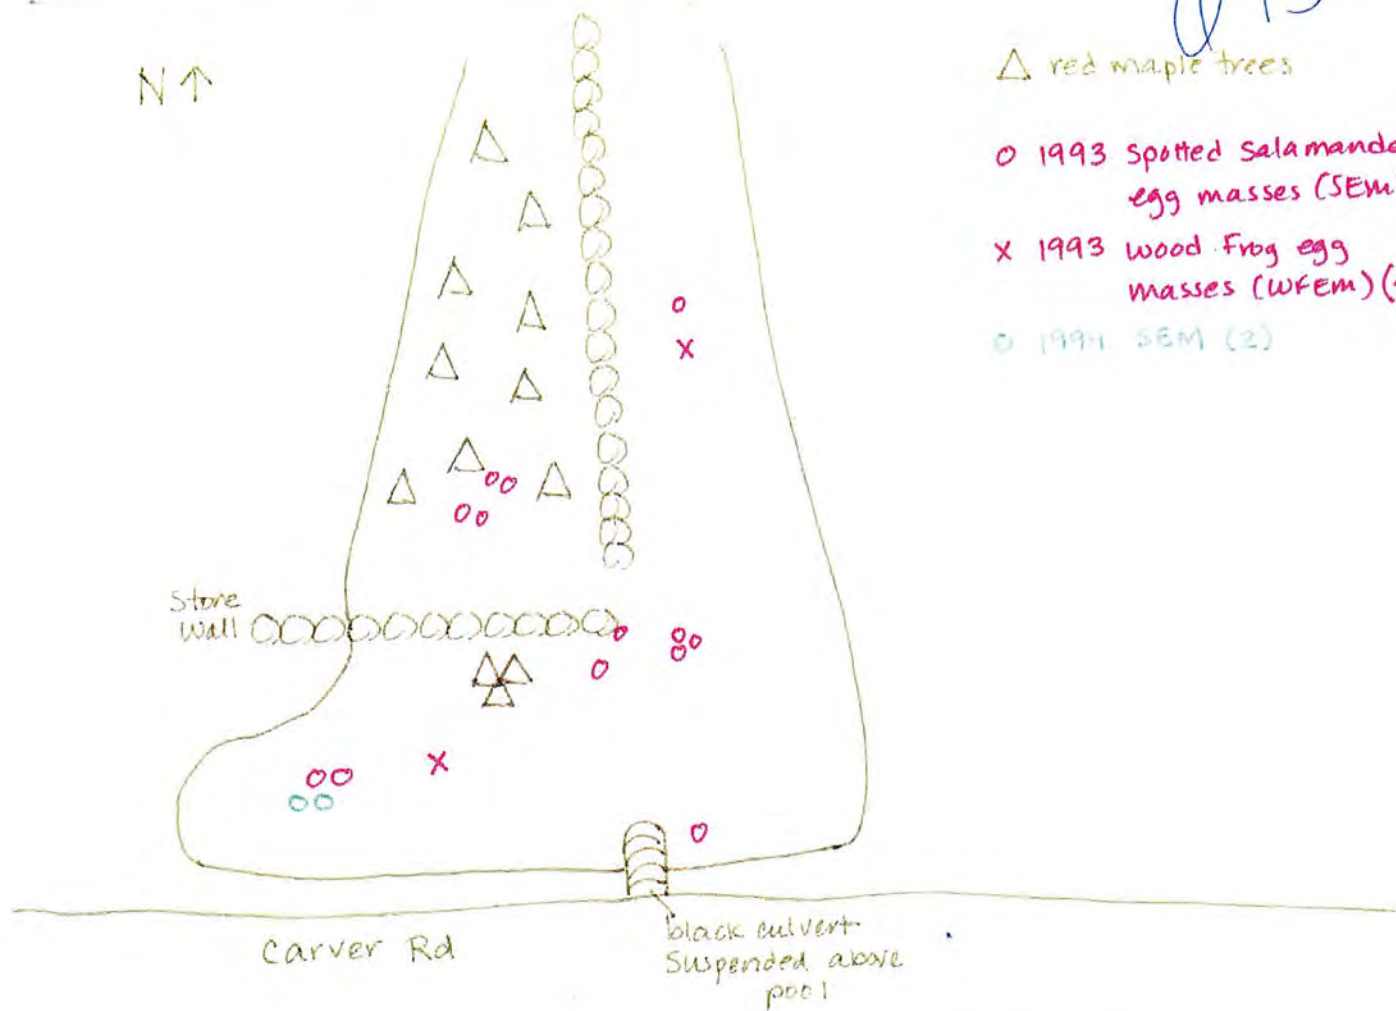 N ↑
△ red maple trees
o 1993 spotted salamande
egg masses (SEM
x 1993 wood frog egg
masses (WFEM) (
o 1994 SEM (2)
Stone
Wall
Carver Rd
black culvert
Suspended above
pool